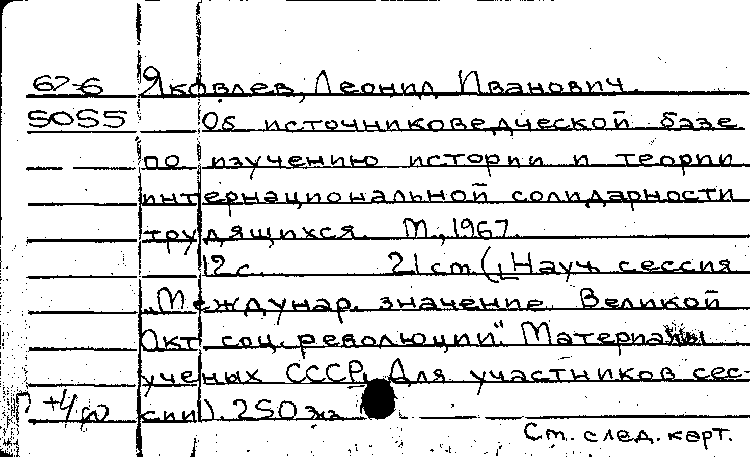 67-6 Яковлев, Леонид Иванович.
5055 Об источниковедческой базе
по изучению истории и теории
интернациональной солидарности
трудящихся. М., 1967.
12 с. 21 см. (Науч. сессия
„Междунар. значение Великой
Окт. соц. революции". Материалы
ученых СССР. Для участников сес-
сии). 250 экз.
См. след. карт.